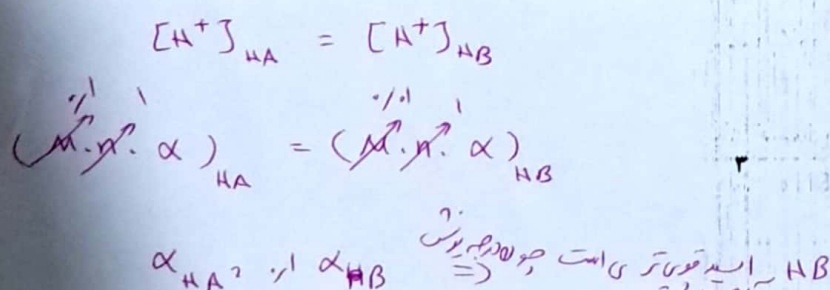 [H⁺]HA = [H⁺]HB
(M.n.α)HA = (M.n.α)HB
αHA = ۰/۱ αHB ⇒ HB اسید قوی‌تری است چون درجه یونش
۲